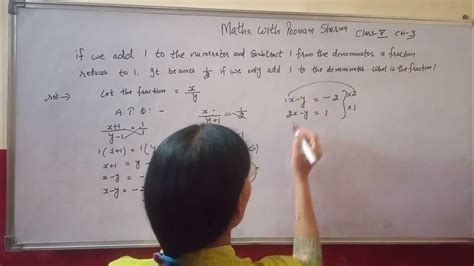 Maths with Poonam Sharma
Class-X Ch-3
if we add 1 to the numerator and subtract 1 from the denominator a fraction
reduces to 1. It becomes 1/2 if we only add 1 to the denominator. What is the fraction?
Sol:→ Let the fraction = x/y
A.T.Q:-
x+1/y-1 = 1/1
1(x+1) = 1(y
x+1 = y
x-y =
x-y = -2
x/y+1 = 1/2
1x-y = -2 ×2
2x-y = 1 ×1